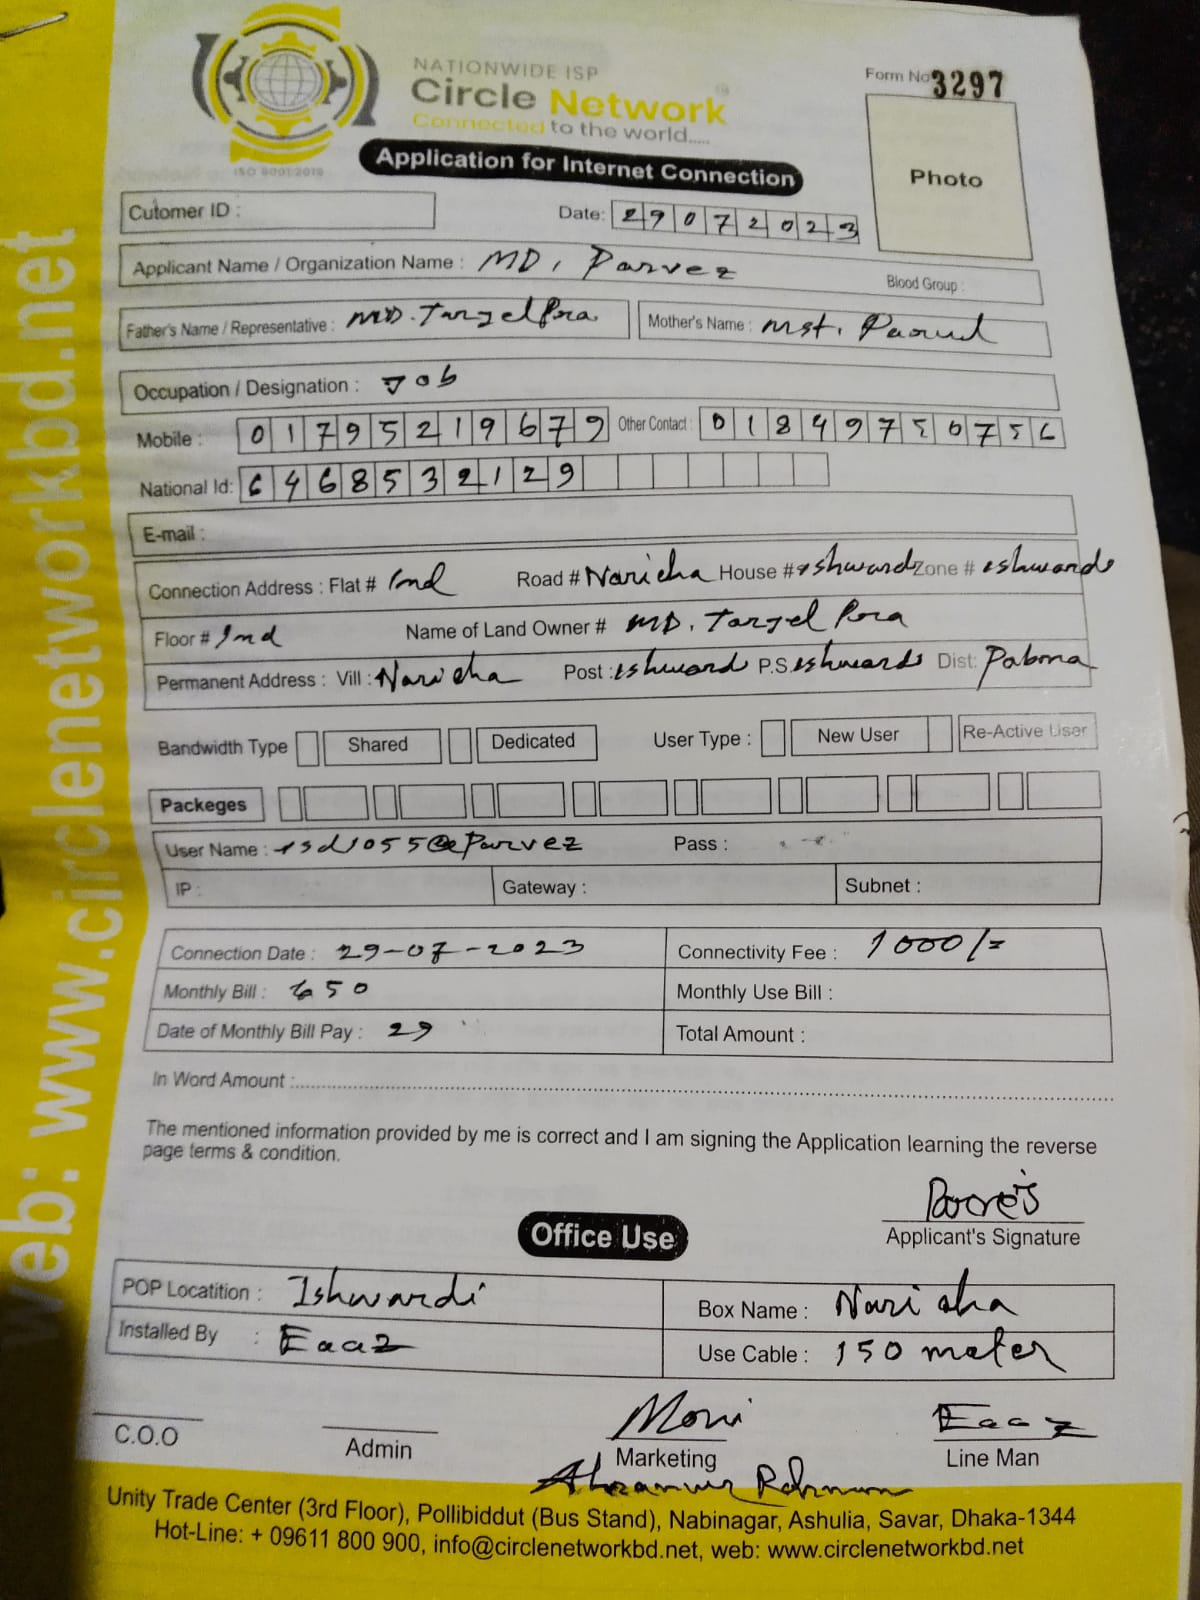 web: www.circlenetworkbd.net
NATIONWIDE ISP
Circle Network
Connected to the world.....
ISO 9001:2015
Form No 3297
Application for Internet Connection
Photo
Cutomer ID :
Date: 29072023
Applicant Name / Organization Name : MD. Parvez
Blood Group :
Father's Name / Representative : MD. Tarzel Pra
Mother's Name : Mst.
Occupation / Designation : Job
Mobile : 01795219679 Other Contact : 01849750756
National Id: 6468532129
E-mail :
Connection Address : Flat # Road # Naricha House # Zone #
Floor # Name of Land Owner # MD. Tarzel Pra
Permanent Address : Vill : Naricha Post : P.S. Dist: Pabna
Bandwidth Type Shared Dedicated User Type : New User Re-Active User
Packeges
User Name : Pass :
IP : Gateway : Subnet :
Connection Date : 29-07-2023 Connectivity Fee : 1000/=
Monthly Bill : 650 Monthly Use Bill :
Date of Monthly Bill Pay : 29 Total Amount :
In Word Amount :
The mentioned information provided by me is correct and I am signing the Application learning the reverse
page terms & condition.
Applicant's Signature
Office Use
POP Locatition : Ishwardi Box Name : Naricha
Installed By : Eaaz Use Cable : 150 meter
Moni Eaaz
C.O.O Admin Marketing Line Man
Unity Trade Center (3rd Floor), Pollibiddut (Bus Stand), Nabinagar, Ashulia, Savar, Dhaka-1344
Hot-Line: + 09611 800 900, info@circlenetworkbd.net, web: www.circlenetworkbd.net